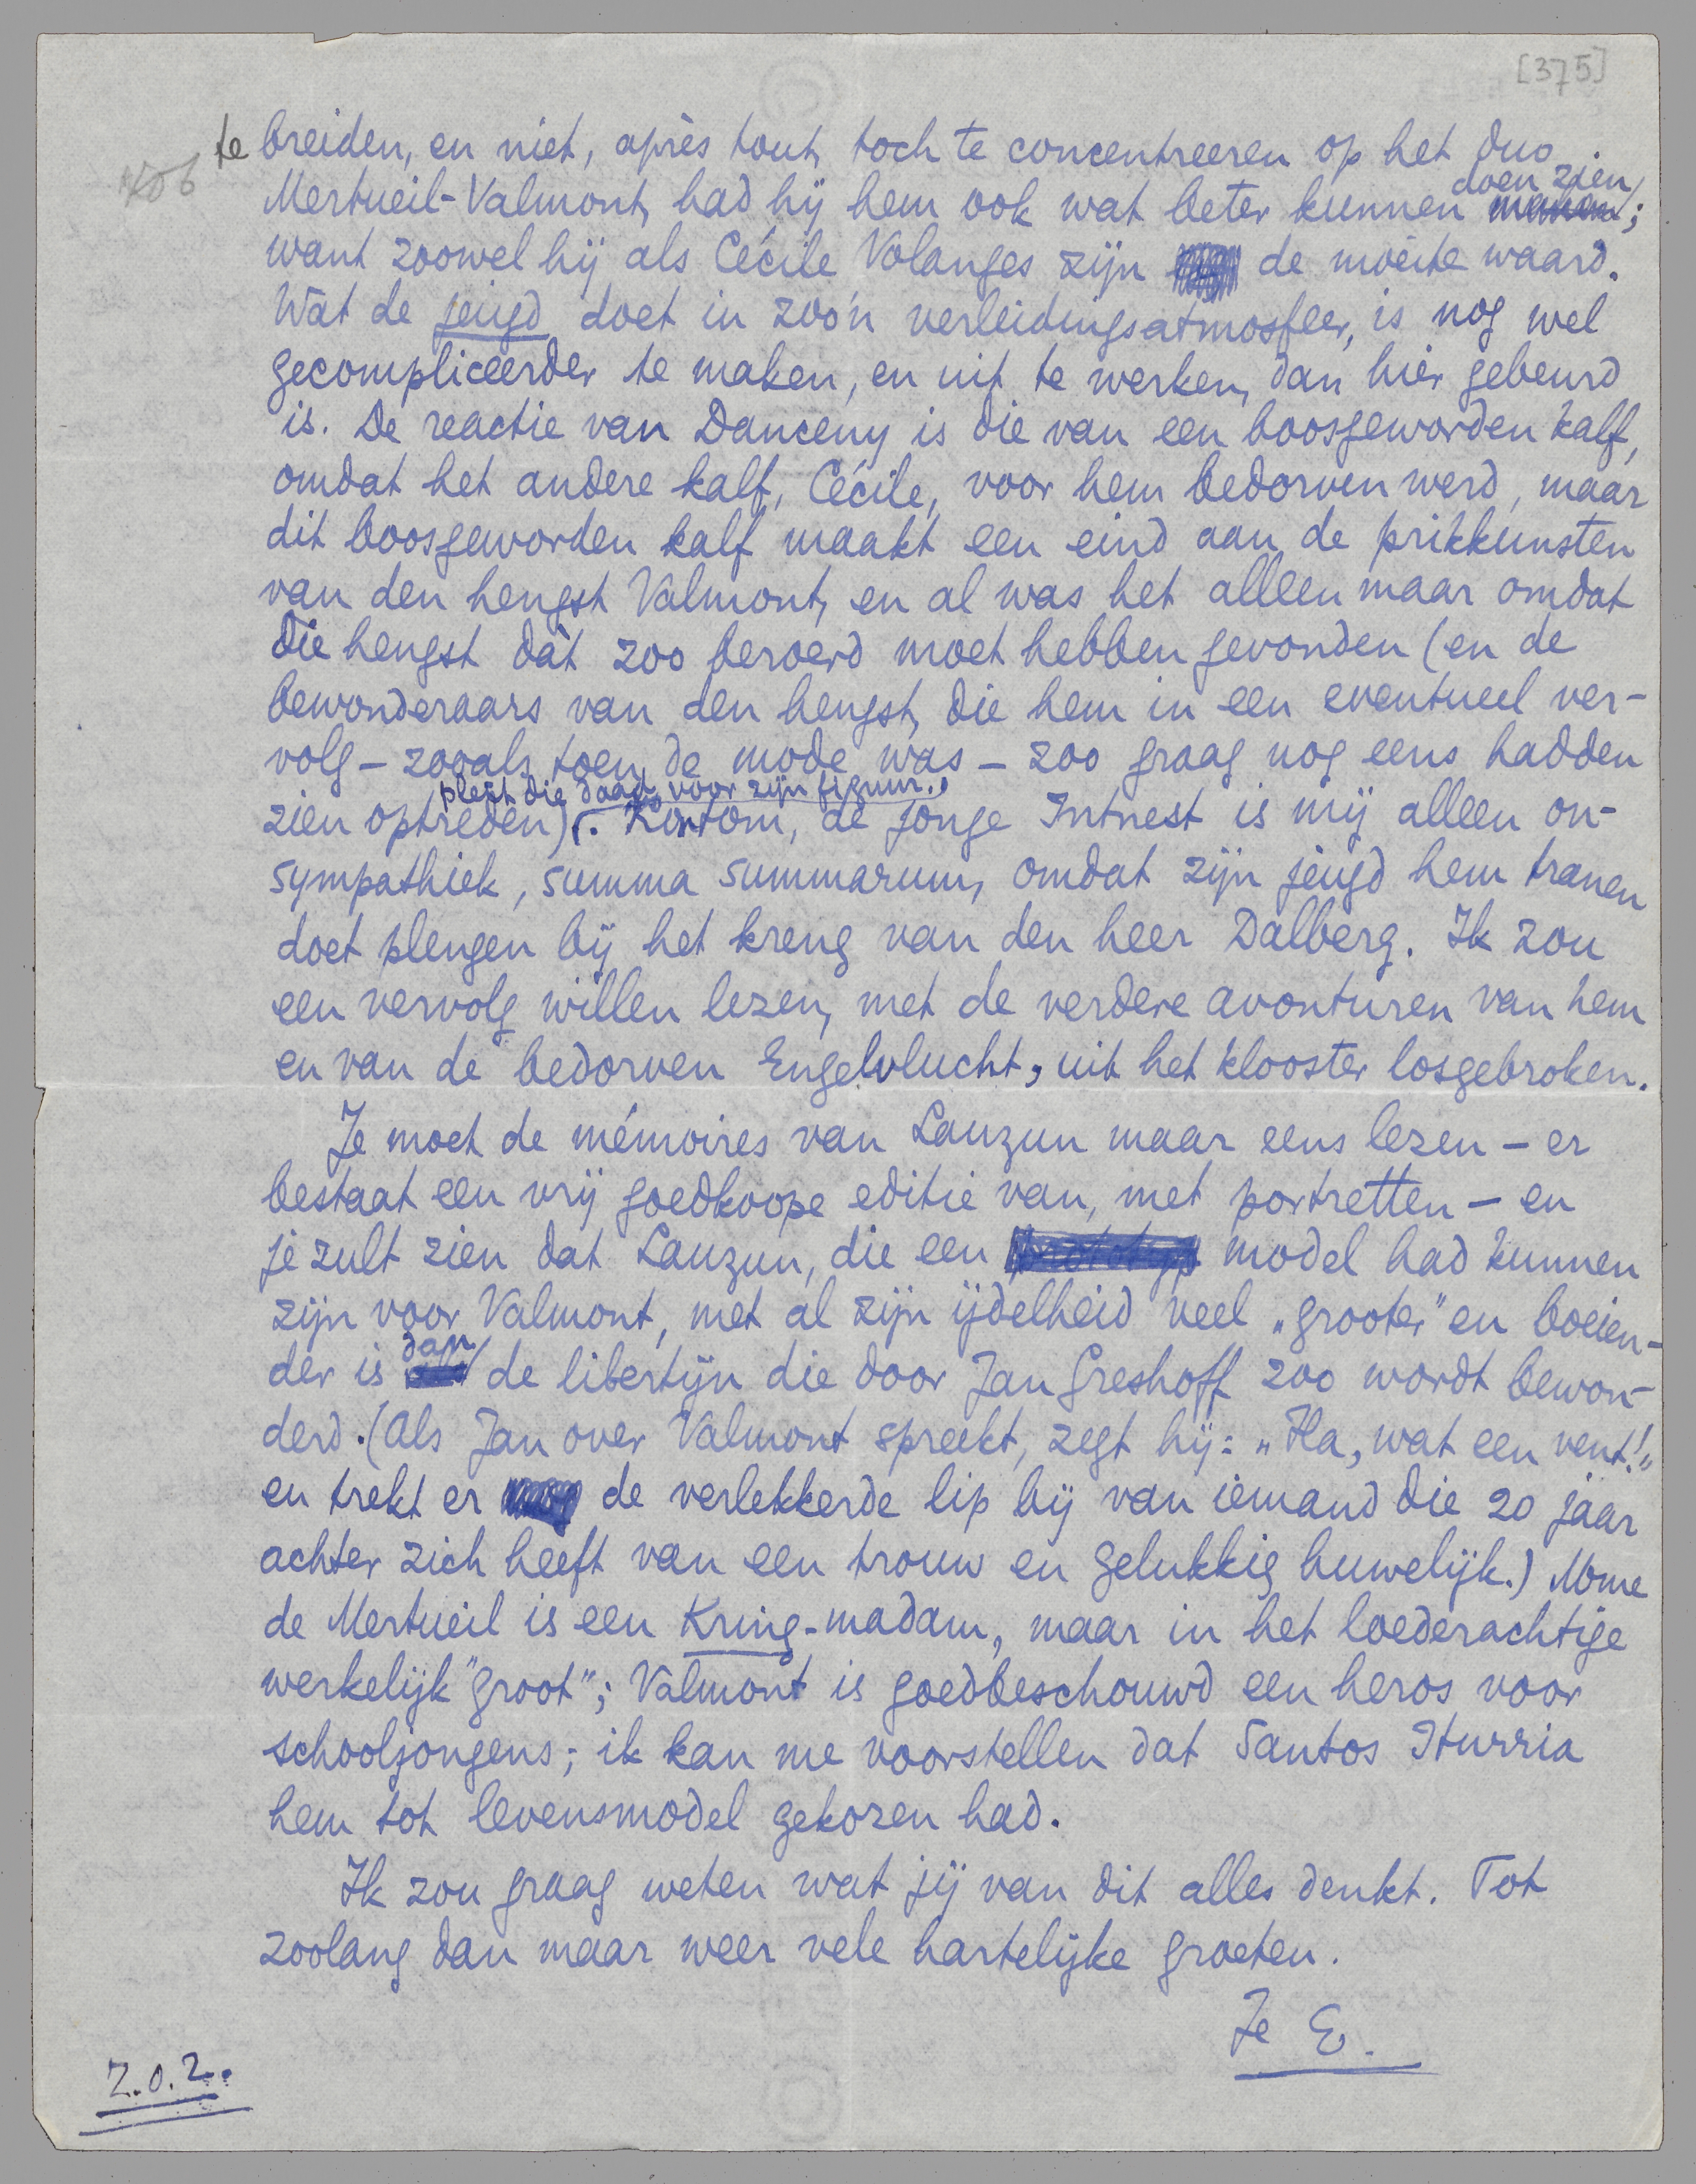 [375]
te breiden, en niet, après tout, toch te concentreeren op het duo
doen zien
Mertueil-Valmont, had hij hem ook wat beter kunnen maken;
want zoowel hij als Cécile Volanges zijn de moeite waard.
Wàt de jeugd doet in zoo'n verleidingsatmosfeer, is nog wel
gecompliceerder te maken, en uit te werken, dan hier gebeurd
is. De reactie van Danceny is die van een boosgeworden kalf,
omdat het andere kalf, Cécile, voor hem bedorven werd, maar
dit boosgeworden kalf maakt een eind aan de prikkunsten
van den hengst Valmont, en al was het alleen maar omdat
die hengst dàt zoo beroerd moet hebben gevonden (en de
bewonderaars van den hengst, die hem in een eventueel ver-
volg – zooals toen de mode was – zoo graag nog eens hadden
pleit die daad voor zijn figuur.
zien optreden). Kortom, de jonge Intnest is mij alleen on-
sympathiek, summa summarum, omdat zijn jeugd hem tranen
doet plengen bij het kreng van den heer Dalberg. Ik zou
een vervolg willen lezen, met de verdere avonturen van hem
en van de bedorven Engelvlucht, uit het klooster losgebroken.
Je moet de mémoires van Lauzun maar eens lezen – er
bestaat een vrij goedkoope editie van, met portretten – en
je zult zien dat Lauzun, die een model had kunnen
zijn voor Valmont, met al zijn ijdelheid veel „grooter" en boeien-
dan
der is de libertijn die door Jan Greshoff zoo wordt bewon-
derd. (Als Jan over Valmont spreekt, zegt hij: „Ha, wat een vent!"
en trekt er de verlekkerde lip bij van iemand die 20 jaar
achter zich heeft van een trouw en gelukkig huwelijk.) Mme
de Mertueil is een Kring-madam, maar in het loederachtige
werkelijk "groot"; Valmont is goedbeschouwd een heros voor
schooljongens; ik kan me voorstellen dat Santos Iturria
hem tot levensmodel gekozen had.
Ik zou graag weten wat jij van dit alles denkt. Tot
zoolang dan maar weer vele hartelijke groeten.
Je E.
Z.O.Z.